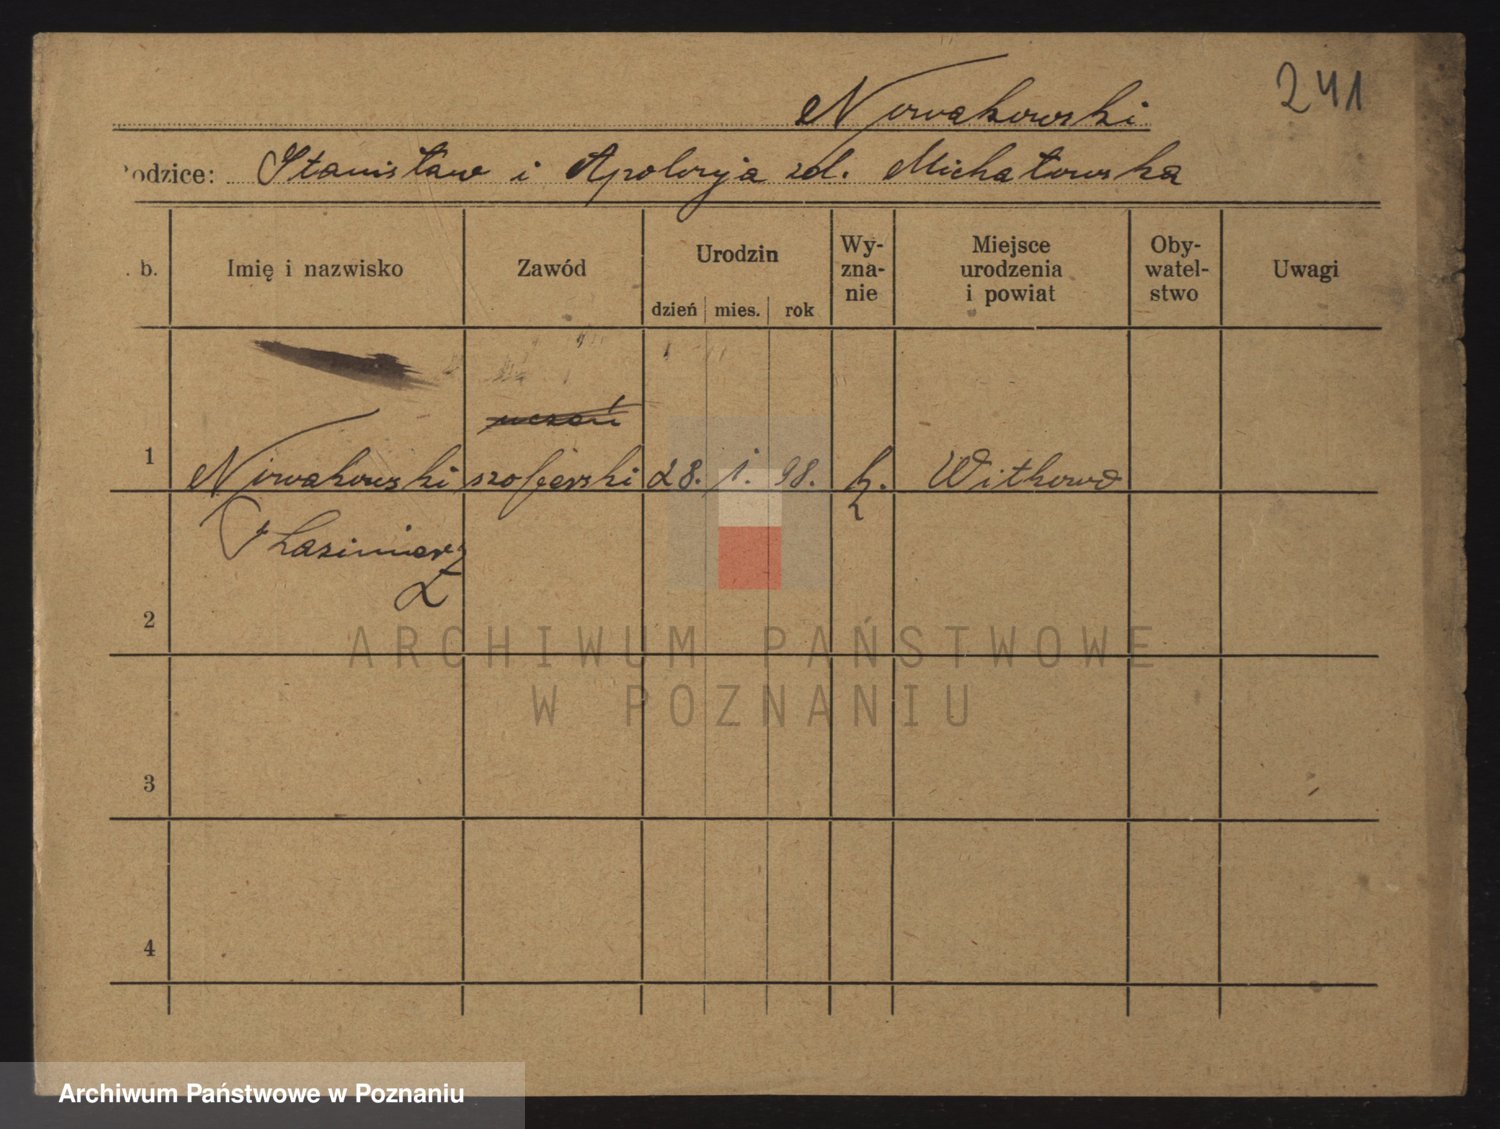 241
Nowakowski
Rodzice: Stanisław i Apolonja zd. Michałowska
. b.
Imię i nazwisko
Zawód
Urodzin
dzień mies. rok
Wy-
zna-
nie
Miejsce
urodzenia
i powiat
Oby-
watel-
stwo
Uwagi
uczeń
1 Nowakowski szoferski 28. 1. 98. k. Witkowo
Kazimierz
2
3
4
ARCHIWUM PAŃSTWOWE
W POZNANIU
Archiwum Państwowe w Poznaniu